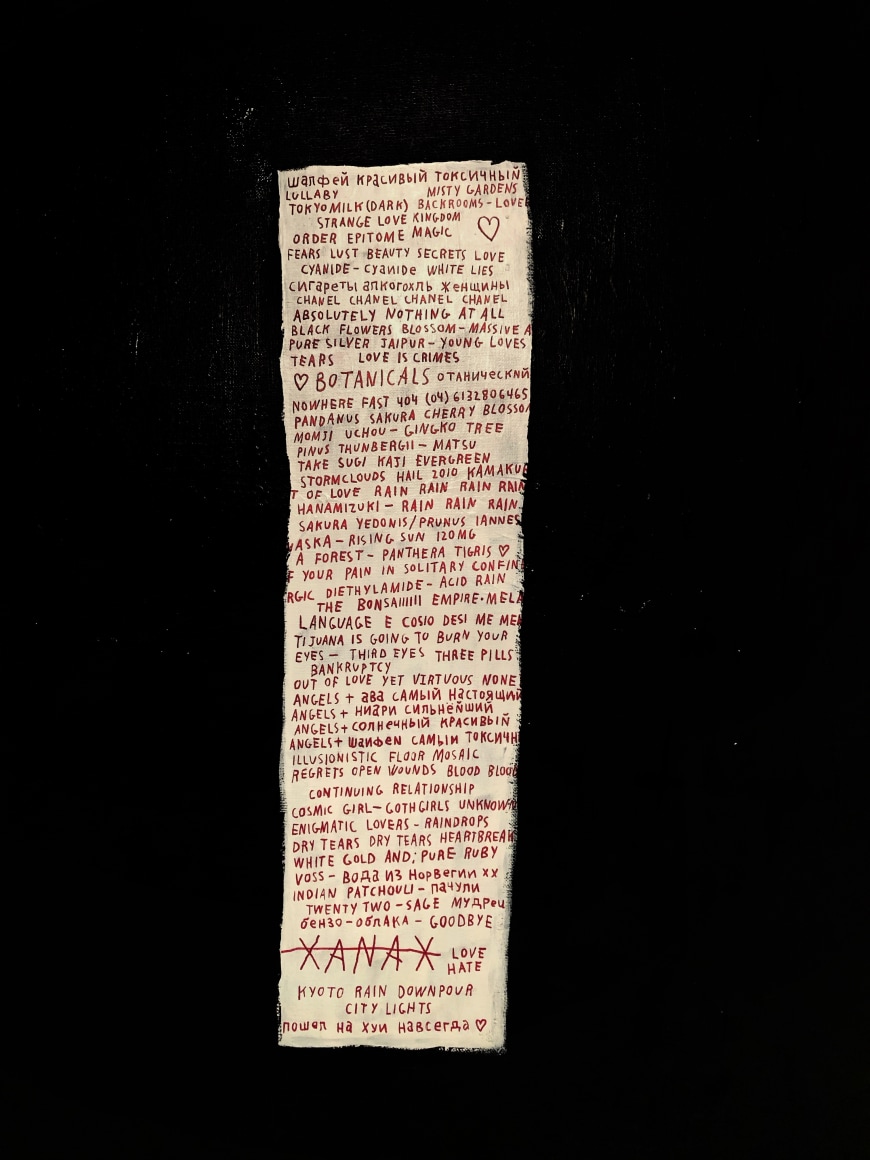 шалфей красивый токсичный
LULLABY MISTY GARDENS
TOKYOMILK (DARK) BACKROOMS - LOVE
STRANGE LOVE KINGDOM
ORDER EPITOME MAGIC ♡
FEARS LUST BEAUTY SECRETS LOVE
CYANIDE - CYANIDE WHITE LIES
сигареты алкогохль женщины
CHANEL CHANEL CHANEL CHANEL
ABSOLUTELY NOTHING AT ALL
BLACK FLOWERS BLOSSOM - MASSIVE A
PURE SILVER JAIPUR - YOUNG LOVES
TEARS LOVE IS CRIMES
♡ BOTANICALS отанический
NOWHERE FAST 404 (04) 6132806465
PANDANUS SAKURA CHERRY BLOSSO
MOMJI UCHOU - GINGKO TREE
PINUS THUNBERGII - MATSU
TAKE SUGI KAJI EVERGREEN
STORMCLOUDS HAIL 2010 KAMAKU
T OF LOVE RAIN RAIN RAIN RAIN
HANAMIZUKI - RAIN RAIN RAIN
SAKURA YEDONIS/PRUNUS IANNES
ASKA - RISING SUN 120MG
A FOREST - PANTHERA TIGRIS ♡
F YOUR PAIN IN SOLITARY CONFIN
RGIC DIETHYLAMIDE - ACID RAIN
THE BONSAIIIIII EMPIRE • MELA
LANGUAGE E COSIO DESI ME ME
TIJUANA IS GOING TO BURN YOUR
EYES - THIRD EYES THREE PILLS
BANKRUPTCY
OUT OF LOVE YET VIRTUOUS NONE
ANGELS + ава самый настоящий
ANGELS + ниари сильнейший
ANGELS + солнечный красивый
ANGELS + шаифеи самыи токсичн
ILLUSIONISTIC FLOOR MOSAIC
REGRETS OPEN WOUNDS BLOOD BLOOD
CONTINUING RELATIONSHIP
COSMIC GIRL - GOTHGIRLS UNKNOWN
ENIGMATIC LOVERS - RAINDROPS
DRY TEARS DRY TEARS HEARTBREAK
WHITE GOLD AND; PURE RUBY
VOSS - вода из Норвегии xx
INDIAN PATCHOULI - пачули
TWENTY TWO - SAGE мудрец
бензо - облака - GOODBYE
XANAX LOVE
HATE
KYOTO RAIN DOWNPOUR
CITY LIGHTS
пошол на хуи навсегда ♡